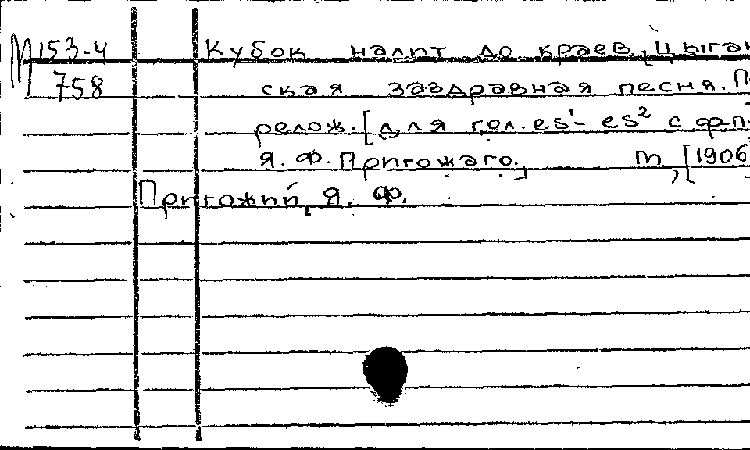 М 153-4 Кубок налит до краев. Цыган
758 ская заздравная песня. П
релож. [для гол. es¹- es² с ф-п.
Я. Ф. Пригожаго. m, [1906
Пригожий, Я. Ф.